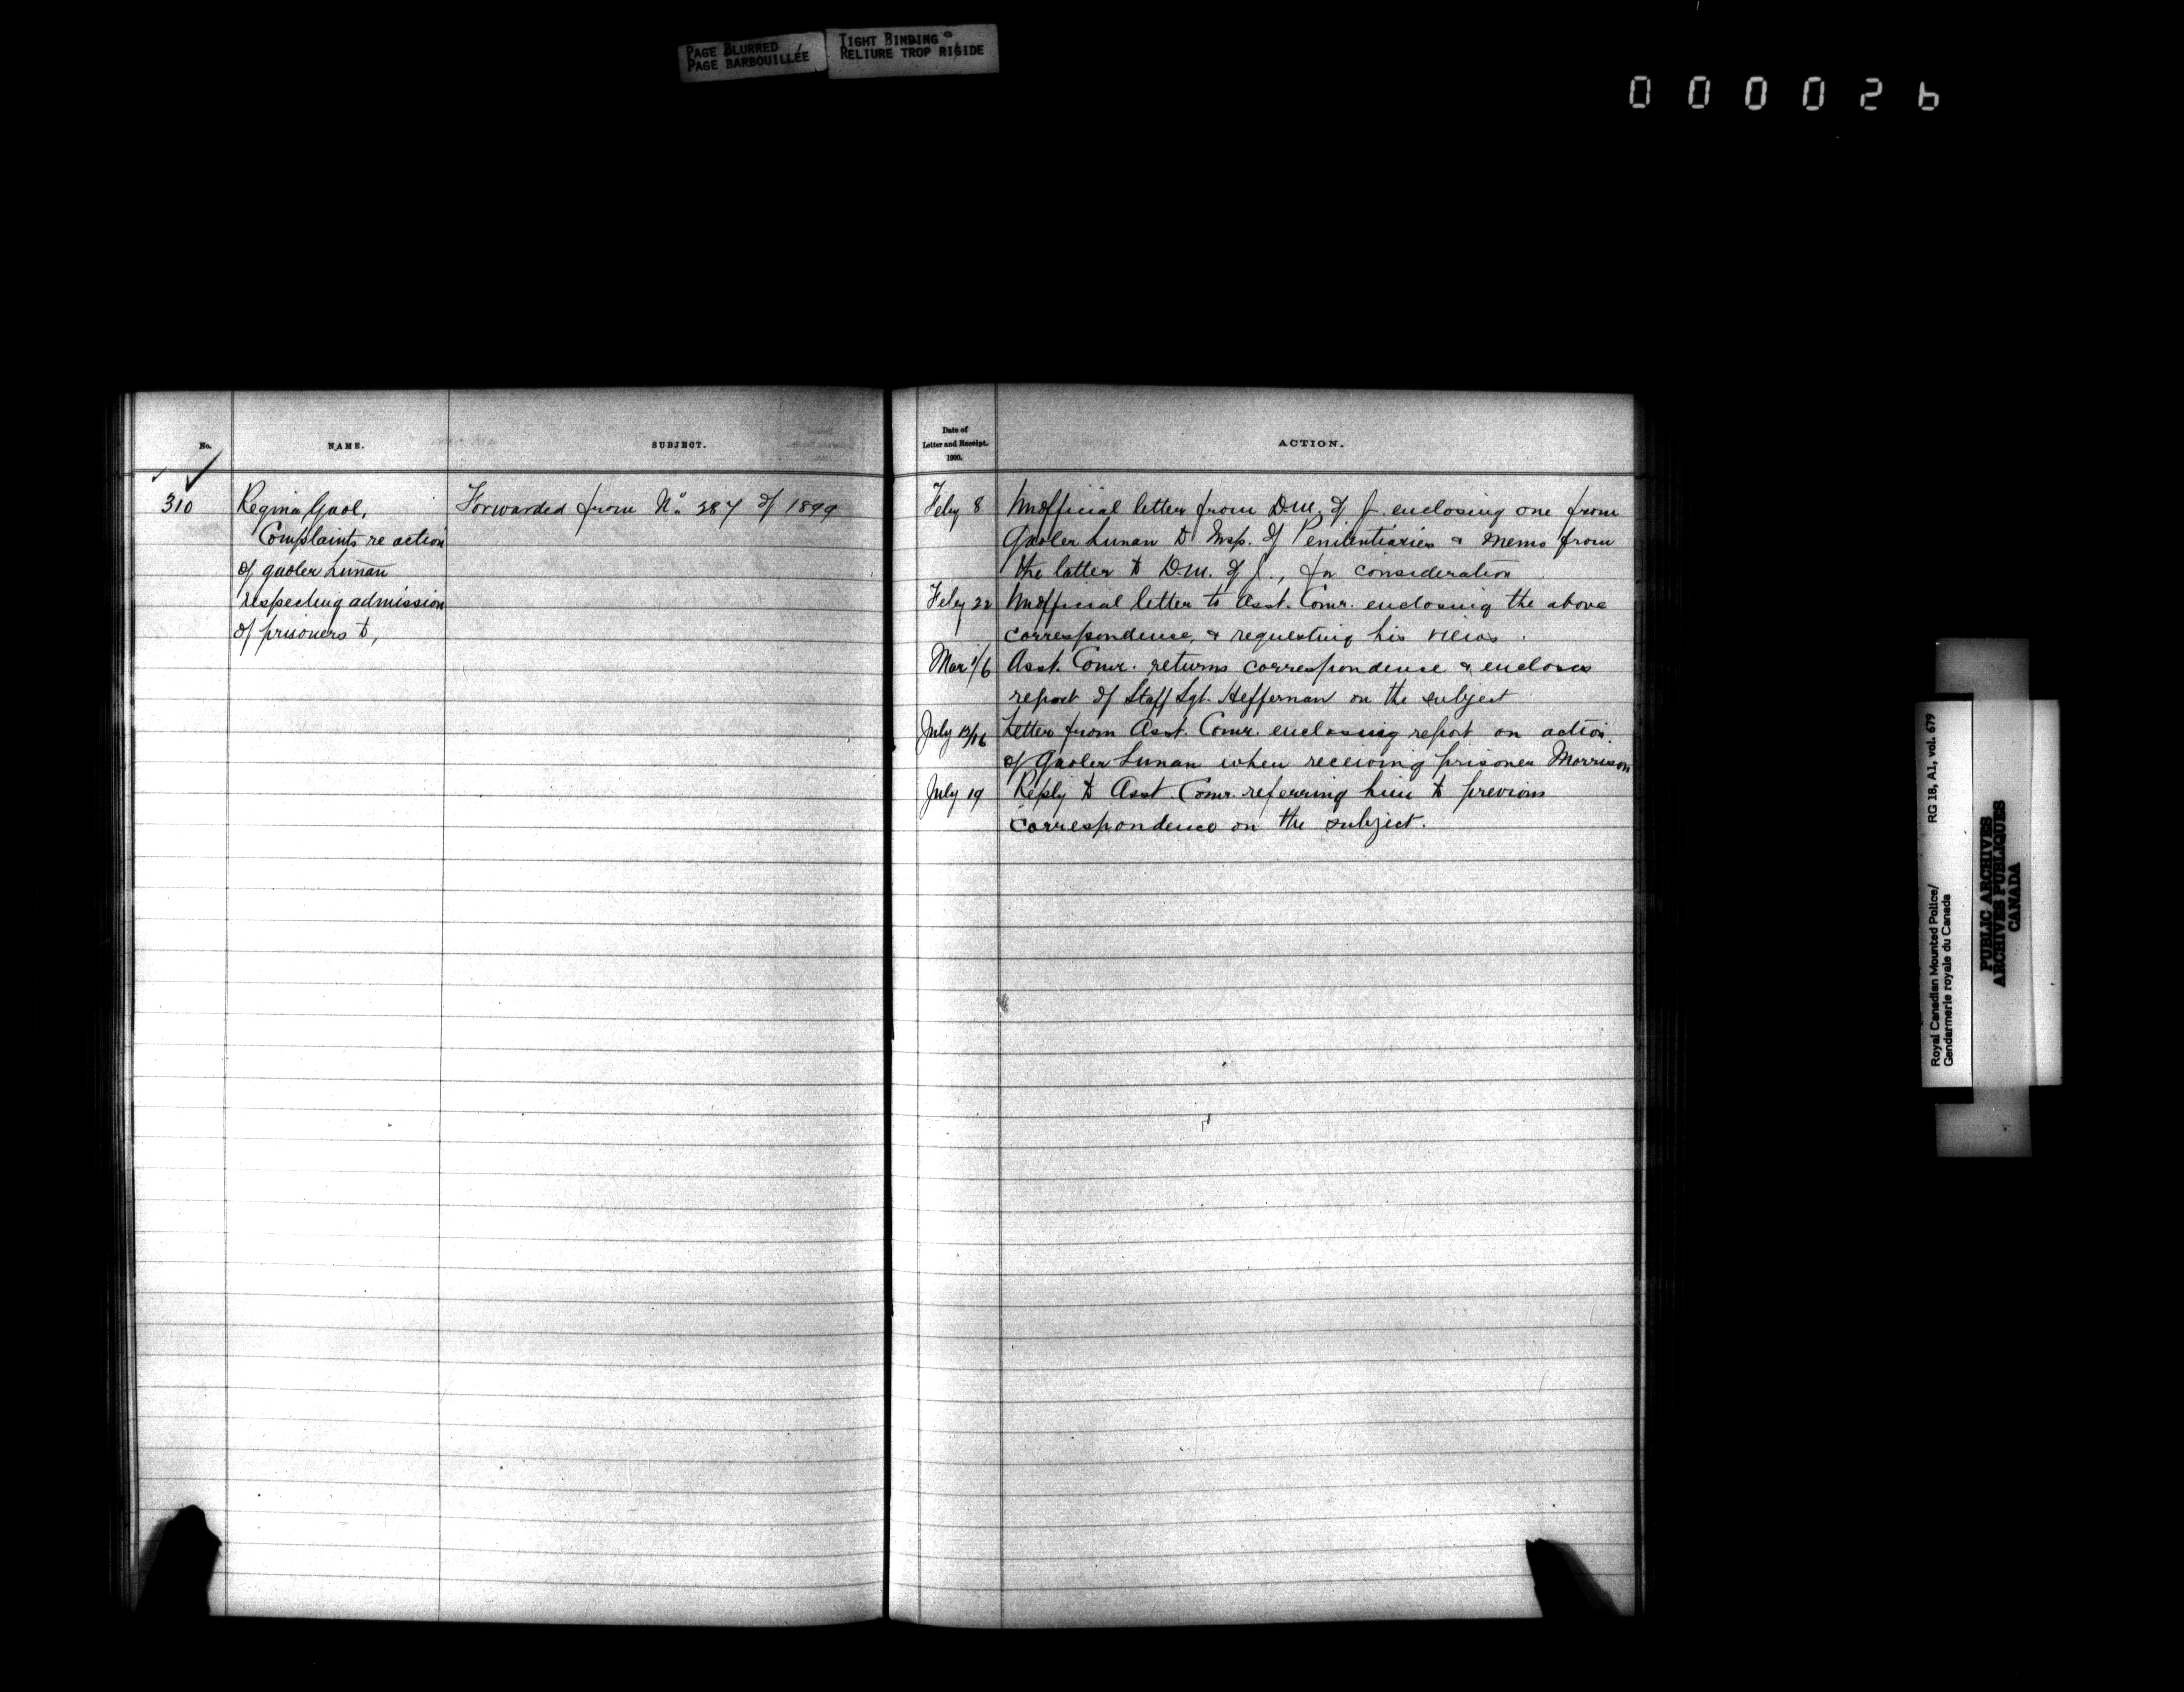 PAGE BLURRED
PAGE BARBOUILLÉE
TIGHT BINDING
RELIURE TROP RIGIDE
000026
No.
NAME.
SUBJECT.
310
Regina Gaol,
Complaints re action
of gaoler Lunan
respecting admission
of prisoners to,
Forwarded from No. 287 of 1899
Date of
Letter and Receipt.
1900.
ACTION.
Feby 8 Unofficial letter from D.M. of J. enclosing one from
Gaoler Lunan to Insp. of Penitentiaries & memo from
the latter to D.M. of J., for consideration
Feby 22 Unofficial letter to Asst. Comr. enclosing the above
correspondence, & requesting his views.
Mar 1/6 Asst. Comr. returns correspondence & encloses
report of Staff Sgt. Heffernan on the subject
July 13/16 Letter from Asst. Comr. enclosing report on action
of Gaoler Lunan when receiving prisoner Morrison
July 19 Reply to Asst. Comr. referring him to previous
correspondence on the subject.
Royal Canadian Mounted Police/
Gendarmerie royale du Canada
RG 18, A1, vol. 679
PUBLIC ARCHIVES
ARCHIVES PUBLIQUES
CANADA